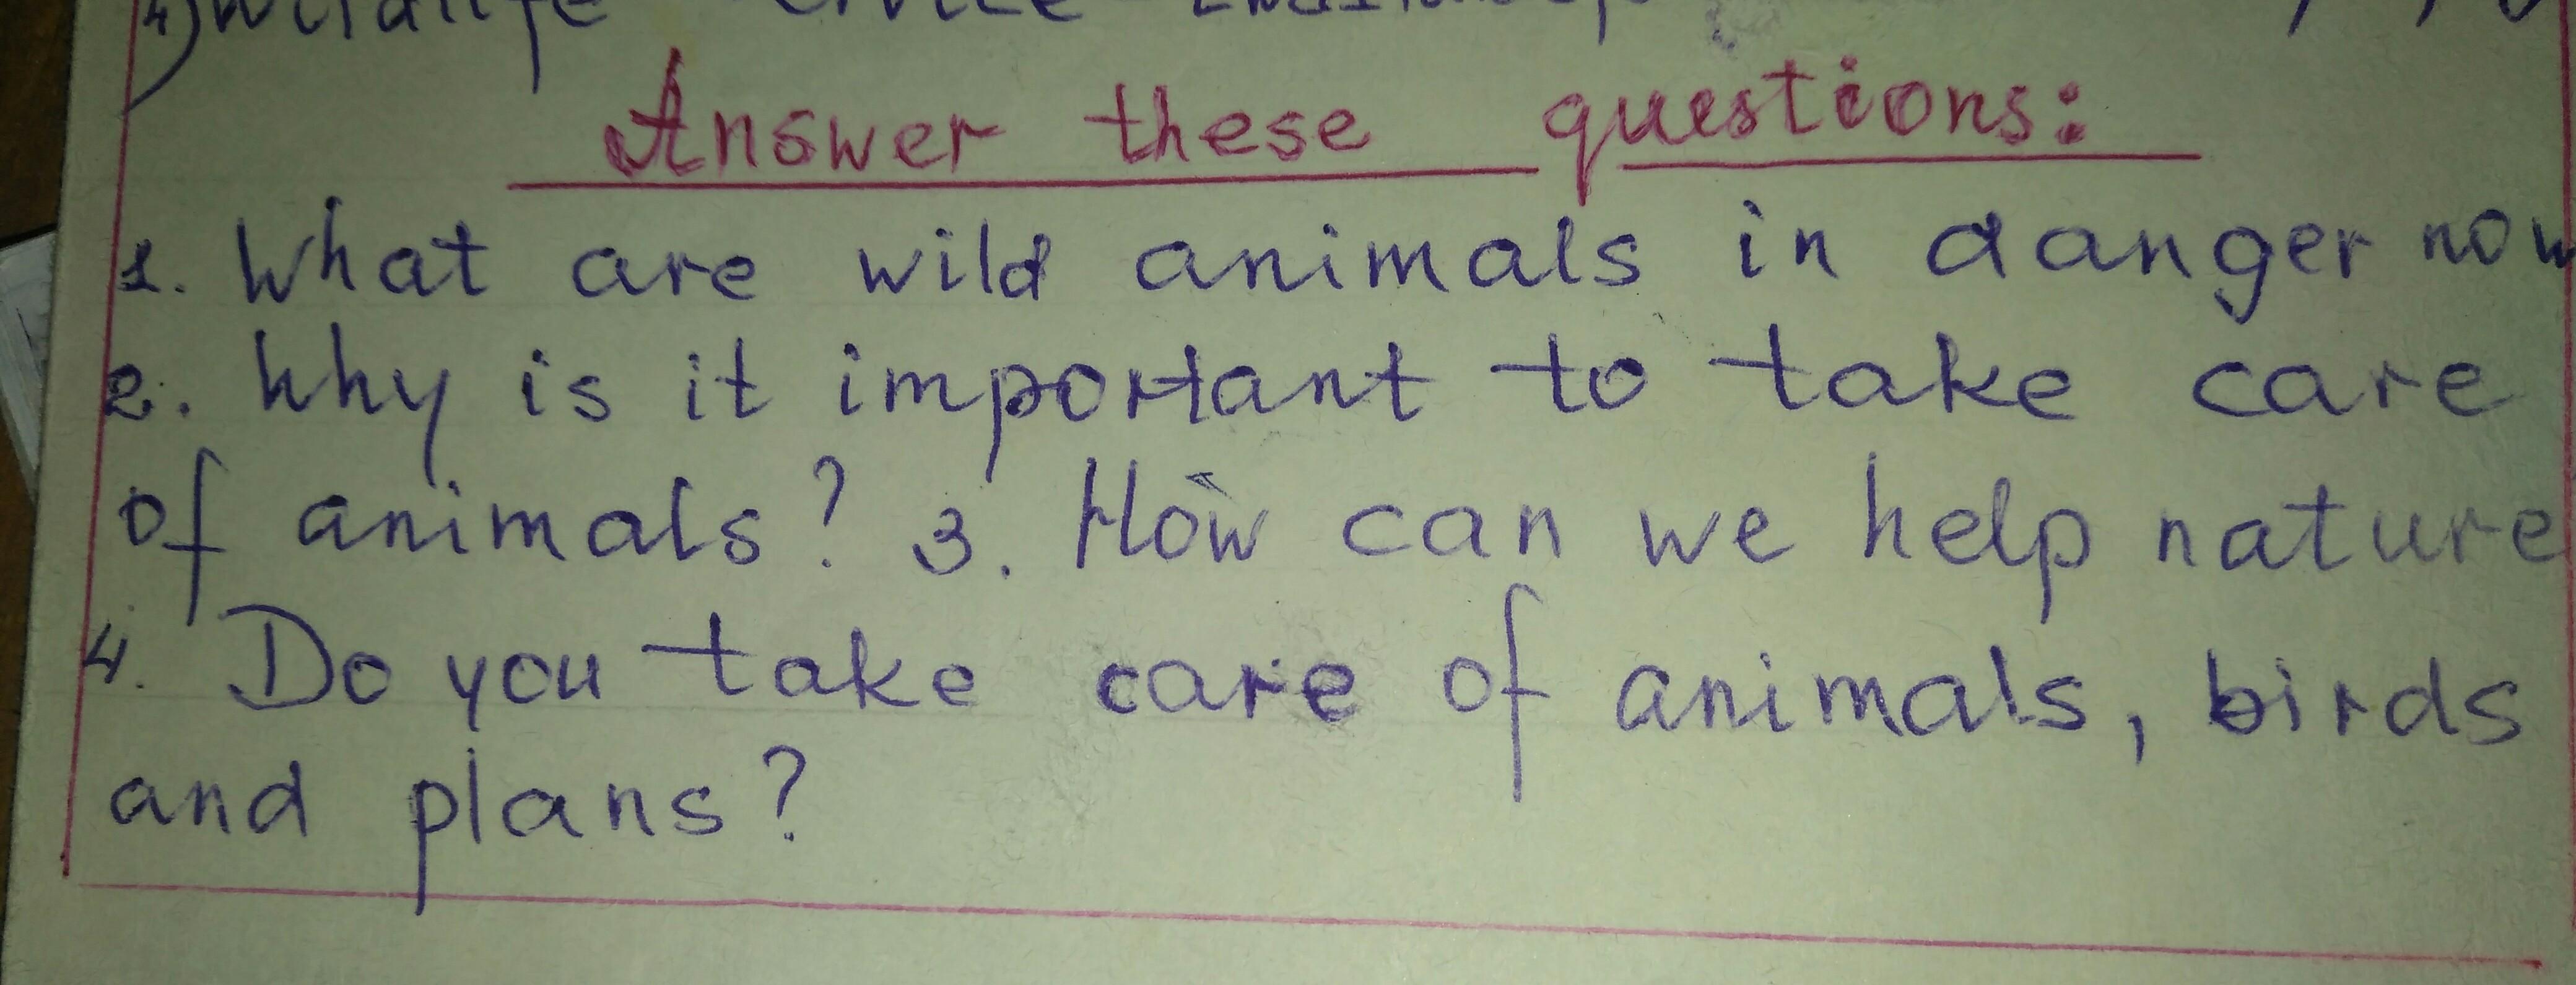 4) Wildlife
Answer these questions:
1. What are wild animals in danger now
2. Why is it important to take care
of animals? 3. How can we help nature
4. Do you take care of animals, birds
and plans?